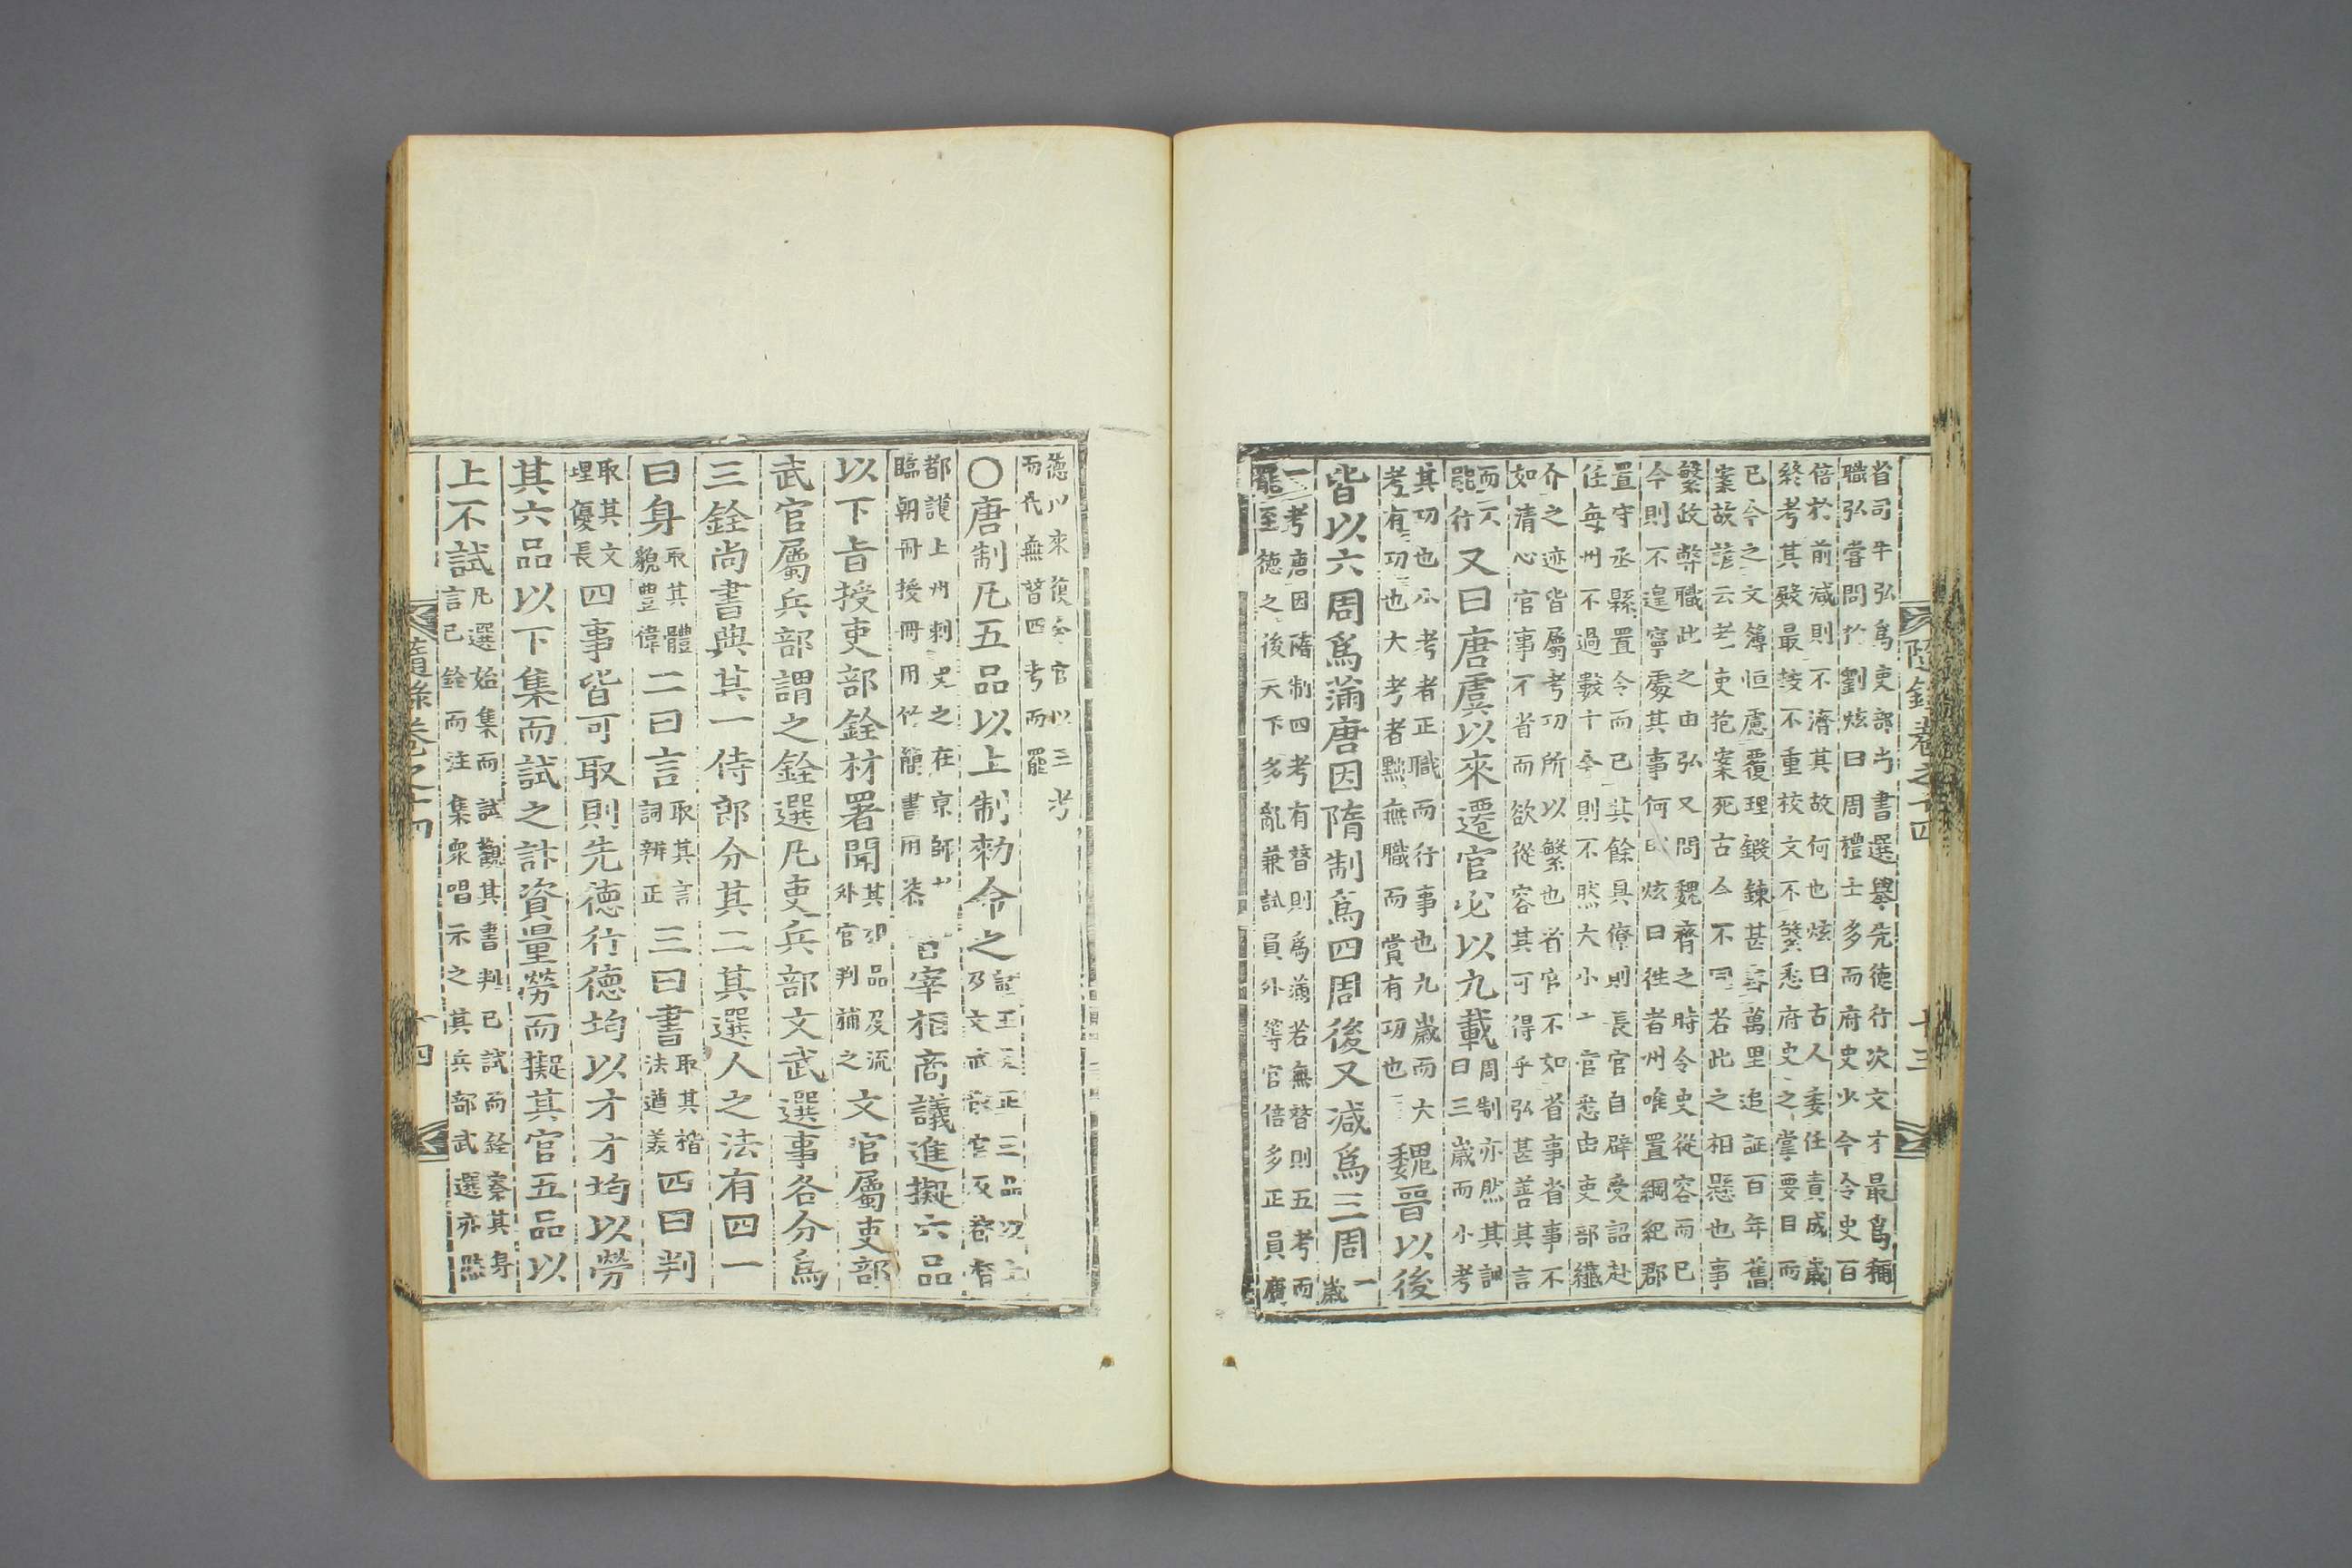 隨錄卷之十四 十三
省司牛弘爲吏部尙書選擧先德行次文才最爲稱
職弘嘗問於劉炫曰周禮士多而府史少今令史百
倍於前減則不濟其故何也炫曰古人委任責成歲
終考其殿最按不重校文不繁悉府史之掌要目而
已今之文簿恒慮覆理鍛鍊甚密萬里追証百年舊
案故諺云老吏抱案死古今不同若此之相懸也事
繁政弊職此之由弘又問魏齊之時令史從容而已
今則不遑寧處其事何由炫曰往者州唯置綱紀郡
置守丞縣置令而已其餘具僚則長官自辟受詔赴
任每州不過數十今則不然大小之官悉由吏部纖
介之迹皆屬考功所以繁也省官不如省事省事不
如淸心官事不省而欲從容其可得乎弘甚善其言
而不能行又曰唐虞以來遷官必以九載周制亦然其訓曰三歲而小考
其功也小考者正職而行事也九歲而大
考有功也大考者黜無職而賞有功也魏晉以後
皆以六周爲滿唐因隋制爲四周後又減爲三周一歲
一考唐因隋制四考有替則爲滿若無替則五考而
罷至德之後天下多亂兼試員外等官倍多正員廣
德以來復令官以三考
而代無替四考而罷
○唐制凡五品以上制勅命之諸王及正三品以上及文武散官二品都督
都護上州刺史之在京師
臨朝冊授冊用竹簡書用漆皆宰相商議進擬六品
以下旨授吏部銓材署聞其視品及流外官判補之文官屬吏部
武官屬兵部謂之銓選凡吏兵部文武選事各分爲
三銓尙書典其一侍郎分其二其選人之法有四一
曰身取其體貌豊偉二曰言取其言詞辨正三曰書取其楷法遒美四曰判
取其文理優長四事皆可取則先德行德均以才才均以勞
其六品以下集而試之計資量勞而擬其官五品以
上不試凡選始集而試觀其書判已試而銓察其身
言已銓而注集衆唱示之其兵部武選亦然
隨錄卷之十四 十四